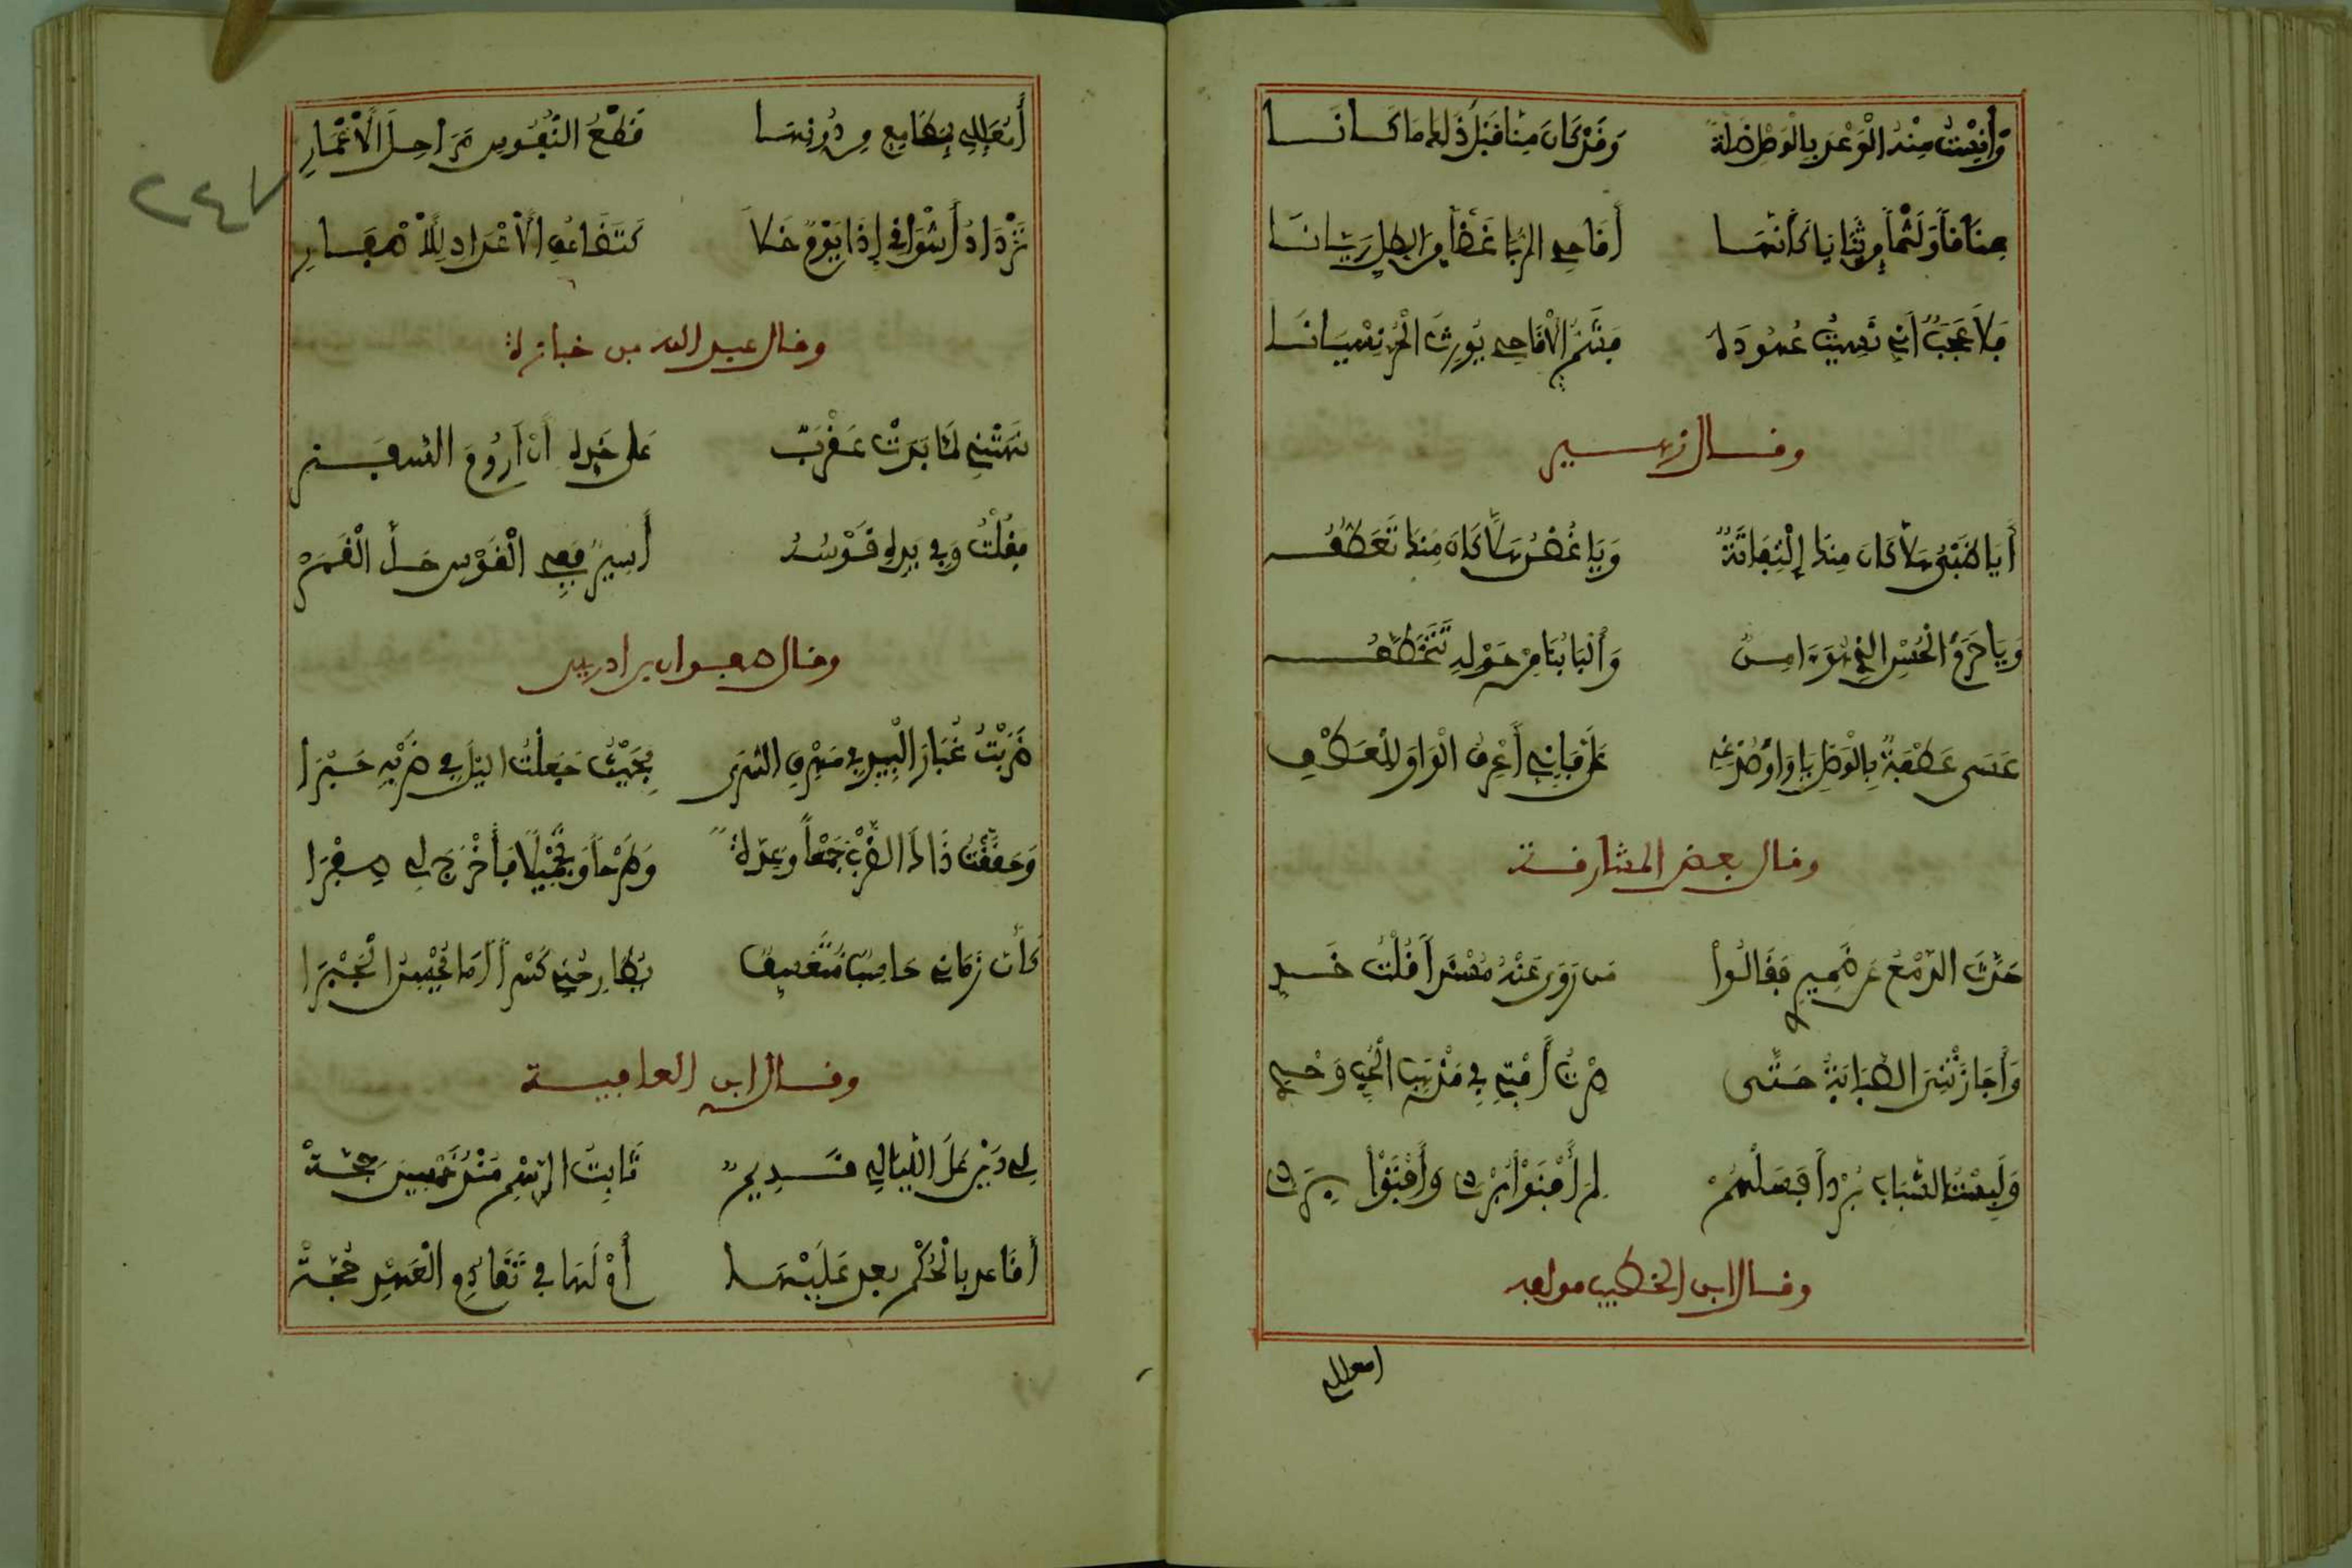 وَأُنْسِيتُ مِنْهُ الْوَعْدَ بِالْوَصْلِ ضَلَّةً وَقَدْ كَانَ مِنَّا قَبْلَ ذَلِكَ مَا كَانَا
عِنَاقاً وَلَثْماً مِنْ ثَنَايَا كَأَنَّهَا أَقَاحِي الرُّبَا غَضّاً مِنَ الطَّلِّ رَيَّانَا
فَلاَ عَجَبٌ أَنِّي نَسِيتُ عُهُودَهُ فَشَمُّ الْأَقَاحِي يُورِثُ الْمَرْءَ نِسْيَانَا
وقال زهير
أَيَا ظَبْيُ هَلَّا كَانَ مِنْكَ إِلْتِفَاتَةٌ وَيَا غُصْنُ هَلَّا كَانَ مِنْكَ تَعَطُّفُ
وَيَا حَرَمَ الْحُسْنِ الذِي هُوَ ءَامِنٌ وَأَلْبَابُنَا مِنْ حَوْلِهِ تَتَخَطَّفُ
عَسَى عَطْفَةٌ بِالْوَصْلِ يَا وَاوَ صُدْغِهِ عَلَيَّ فَإِنِّي أَعْرِفُ الْوَاوَ لِلْعَطْفِ
وقال بعض المشارقة
حَدَّثَ الدَّمْعُ عَنْ ضَمِيرِي فَقَالُوا مَن رَوَى عَنْهُ مُسْنَداً قُلْتُ خَدِي
وَأَجَازَتْنِيَ الصَّبَابَةُ حَتَّى صِرْتُ أُفْتِي فِي مَذْهَبِ الْحُبِّ وَحْدِي
وَلَبِسْتُ الشَّبَابَ بُرْداً فَسَلْهُمْ لِمَ أَفْنَوْا بُرْدِي وَأَبْقَوْا
وقال ابن الخطيب مولفه
امعللي
أَمُعَلِّلِي بِمَطَامِعٍ مِن دُونِهَا قَطْعُ النُّفُوسِ مَرَاحِلَ الْأَعْمَارِ
تَزْدَادُ أَشْوَاقِي إِذَا يَوْمٌ خَلَا كَتَضَاعُفِ الْأَعْدَادِ لِلْأَصْفَارِ
وقال عبد الله بن خبازة
نَهَتْنِيَ لَمَّا بَدَتْ عَقْرَبٌ عَلَى خَدِّهِ أَنْ أَرُومَ السَّفَرْ
فَقُلْتُ وَفِي يَدِهِ قَوْسُهُ أَسِيرُ فَفِي الْقَوْسِ حَلَّ الْقَمَرْ
وقال صفوان بن ادريس
ضَرَبْتُ غُبَارَ الْبِيدِ فِي مَهْرَقِ السُّرَى بِحَيْثُ جَعَلْتُ اليْلَ فِي ضَرْبِهِ حَبْرَا
وَحَقَّقْتُ ذَاكَ الضَّرْبَ جَمْعاً وَعِدَّةً وَطَرْحاً وَتَجْمِيلًا فَأَخْرَجَ لِي صِفْرَا
كَأَنَّ زَمَانِي حَاسِبٌ مُتَعَسِّفٌ يُطَارِحُنِي كَسْراً أَمَا يُحْسِنُ الْجَبْرَا
وقال ابن العافية
لِي دَيْنٌ عَلَى اللَّيَالِي قَدِيمٌ ثَابِتُ الرَّسْمِ مُنْذُ خَمْسِينَ حِجَّةْ
أَفَأُعْدَى بِالْحُكْمِ بعد عَلَيْهَا أَمْ لَهَا فِي تَقَادُمِ الْعَهْدِ حُجَّةْ
٢٤٧